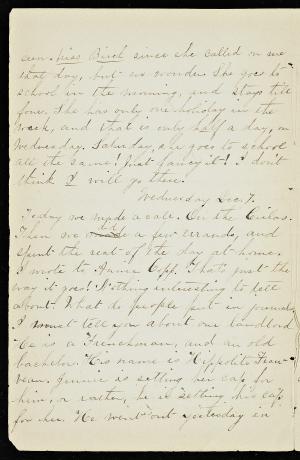 seen Miss Birch since she called on me
that day, but no wonder. She goes to
school in the morning, and stays till
four. She has only one holiday in the
week, and that is only half a day, on
Wednesday. Saturday, she goes to school
all the same! Just fancy it! I don't
think I will go there.
Wednesday Dec. 7.
Today we made a call. On the
Then we did a few errands, and
spent the rest of the day at home.
I wrote to Annie Copp. That's just the
way it goes! Nothing interesting to tell
about. What do people put in journals
I must tell you about our landlord
He is a Frenchman, and an old
bachelor. His name is Hippolite
Jennie is setting her cap for
him, or rather, he is setting his cap
for her. He went out yesterday in